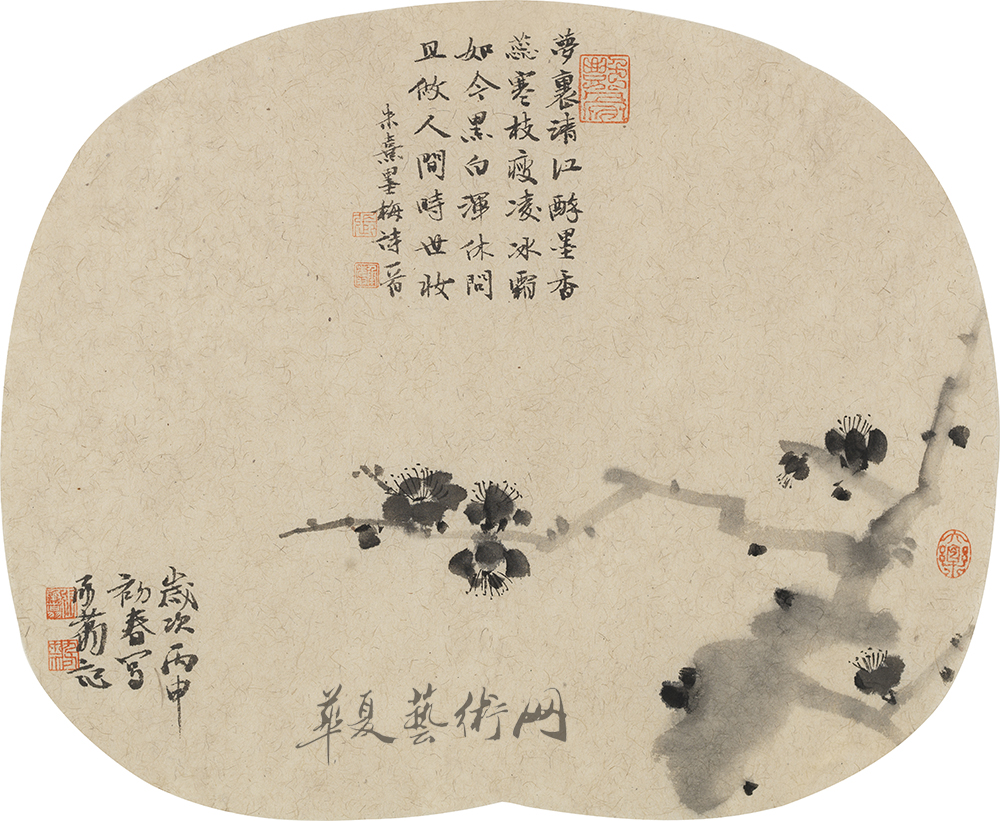 夢裏清江醉墨香
蕊寒枝瘦凌冰霜
如今黑白渾休問
且做人間時世妆
朱熹墨梅詩
歲次丙申
初春寫
記
華夏藝術网